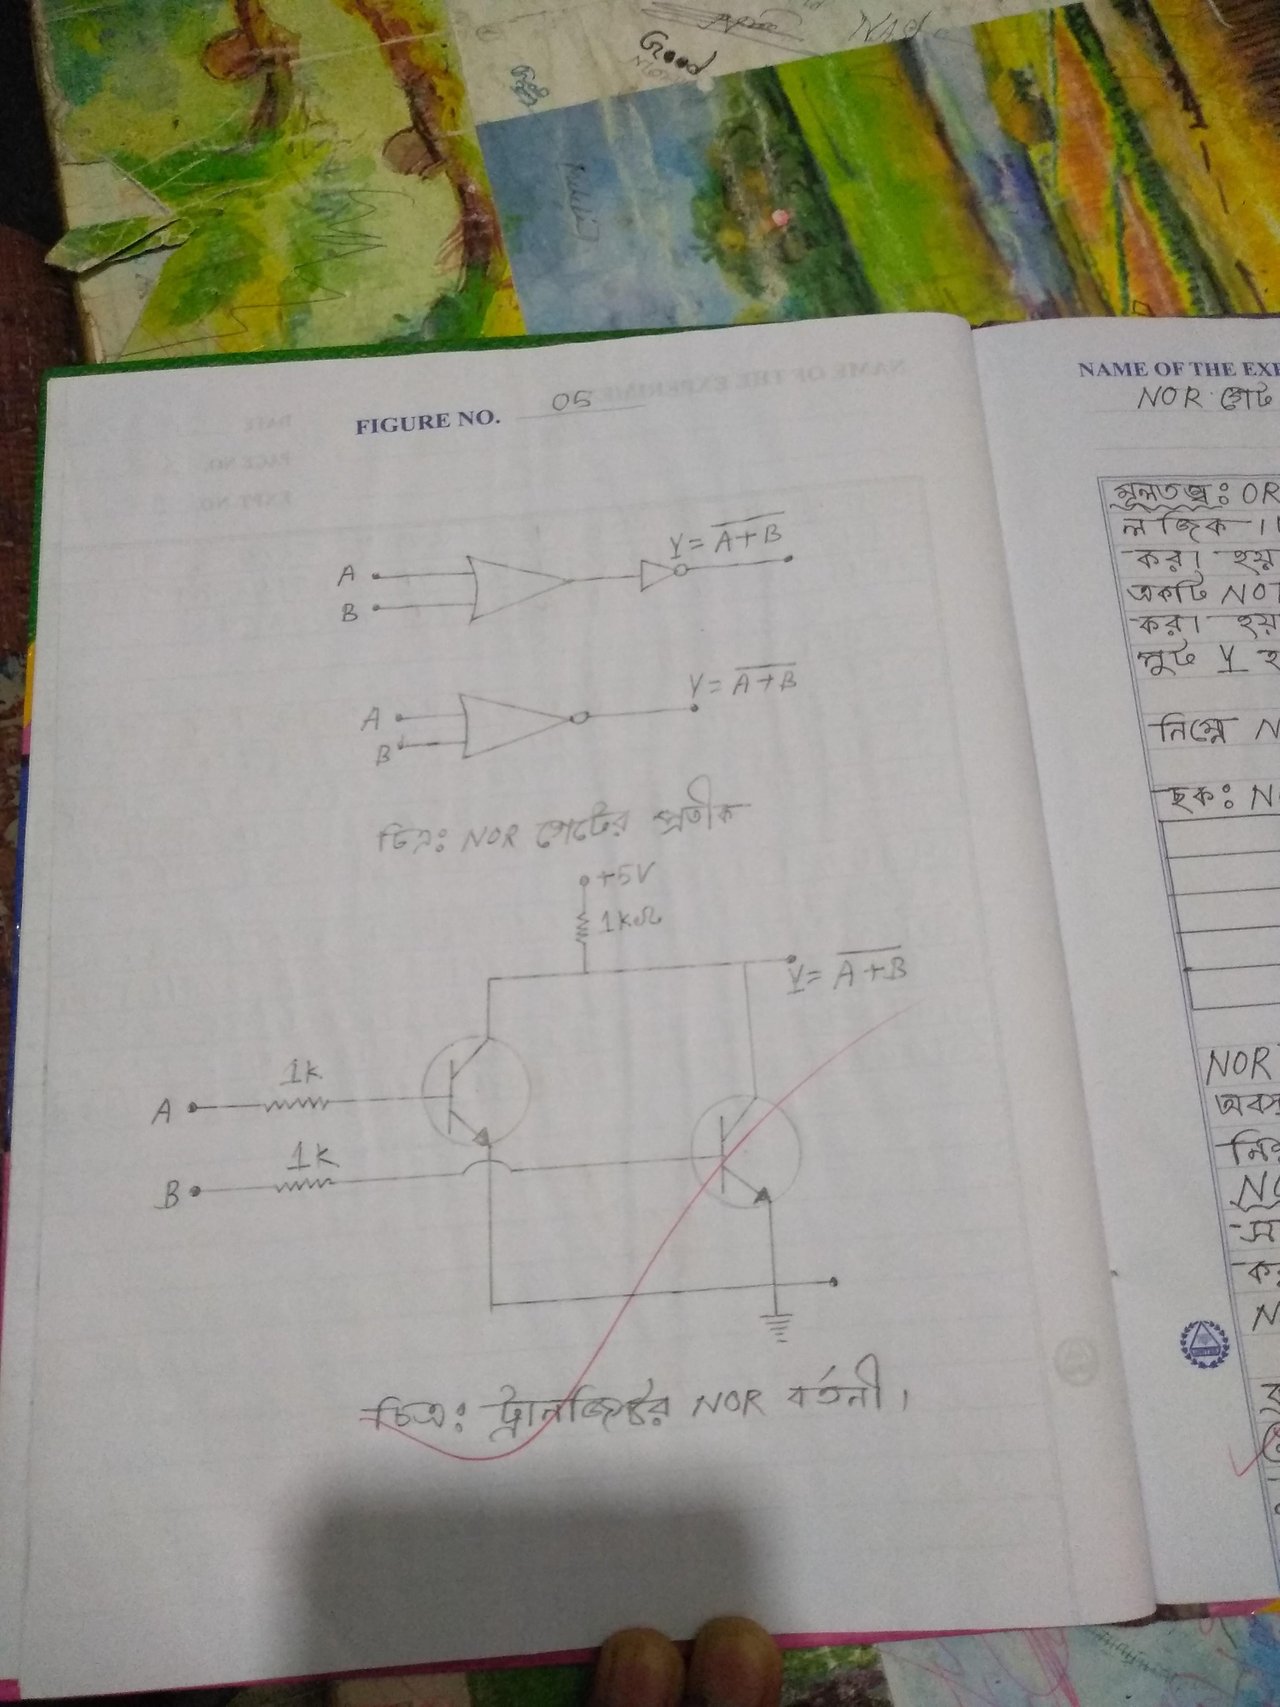 Good
FIGURE NO. 05
A
B
Y = A+B
A
B
Y = A+B
চিত্র: NOR গেটের প্রতীক
+5V
1kΩ
Y = A+B
1k
A
1k
B
চিত্র: ট্রানজিস্টর NOR বর্তনী।
NAME OF THE EXP
NOR গেট
মূলতত্ত্ব: OR
লজিক ।।
করা হয়
একটি NOT
করা হয়
পুট Y হ
নিম্নে N
ছক: N
NOR
অবস
নি
N
স
কর
N